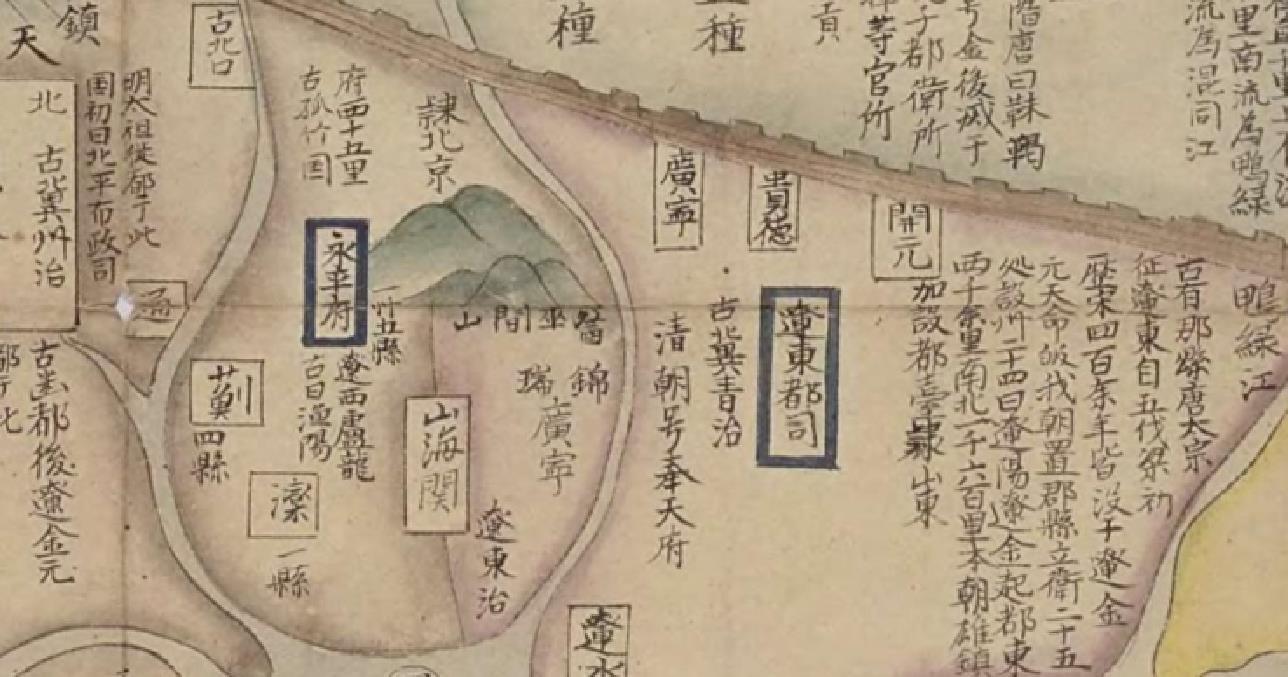 流為混同江
里南流為鴨綠
階唐曰靺鞨
号金後滅于
子都衛所
等官所
貢
種
種
鎮
天
古北口
北
古冀州治
明太祖從都于此
国初曰北平布政司
府西十五里
古孤竹国
隸北京
永平府
一州五縣
遼西盧龍
古曰漁陽
薊
四縣
灤
一縣
山海関
醫巫閭山
錦
瑞
廣寧
遼東治
廣寧
貴德
開元
遼東都司
古冀青治
清朝号奉天府
鴨綠江
古有那縣唐太宗
征遼東自五伐梁初
歴宋四百余年皆没于遼金
元天命皈我朝置郡縣立衛二十五
処設州二十四曰遼陽遼金起都東
西千余里南北一千六百里本朝雄鎮
加設都臺隸山東
古幽都後遼金元
遼水